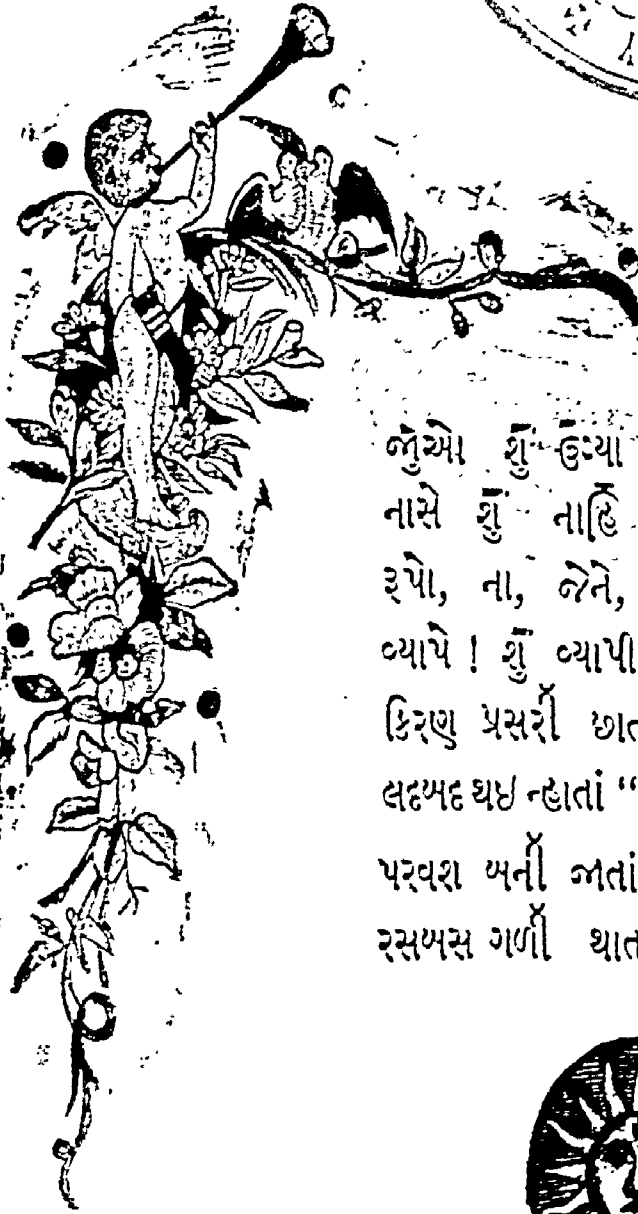 જુઓ શું ઉગ્યા
નાસે શું નાહિ
રૂપો, ના, જેને,
વ્યાપે ! શું વ્યાપી
કિરણ પ્રસરી છાત
લદબદ થઇ ન્હાતાં “
પરવશ બની જાતાં
રસબસ ગળી થાત